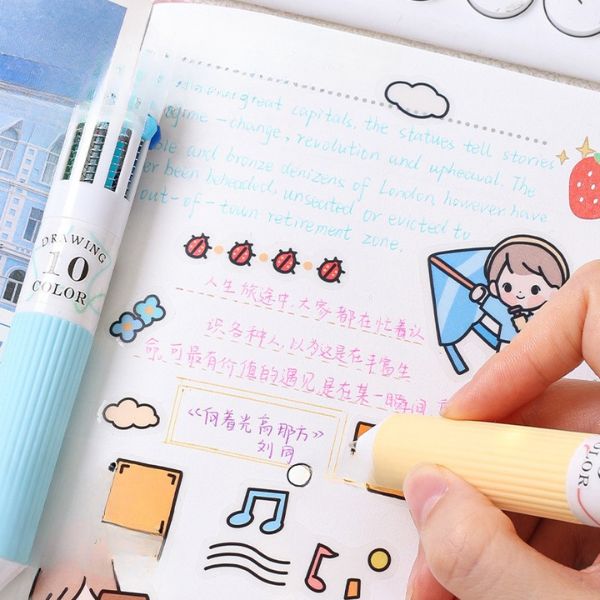 great capitals, the statues tell stories
-change, revolution and upheaval. The
and bronze denizens of London however have
been beheaded, unseated or evicted to
out-of-town retirement zone.
人生旅途中,大家都在忙着认
识各种人,以为这是在丰富生
命,可最有价值的遇见,是在某一瞬间
《向着光亮那方》
刘同
DRAWING
10
COLOR
COLOR